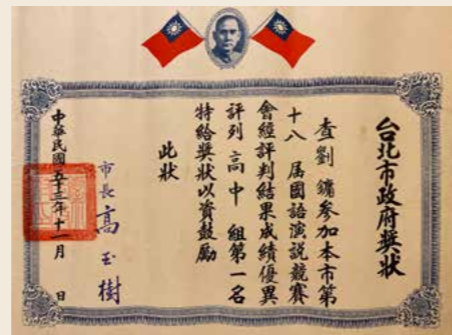 台北市政府獎狀
查劉鏞參加本市第
十八屆國語演說競賽
會經評判結果成績優異
評列高中組第一名
特給獎狀以資鼓勵
此狀
市長高玉樹
中華民國五十三年十一月 日